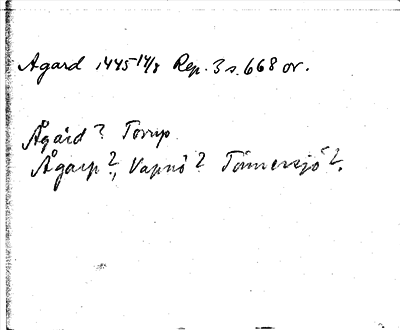 Agard 1445 14/8 Rep. 3 s. 668 or.
Ågård? Torup
Ågarp?, Vapnö? Tönnersjö?.